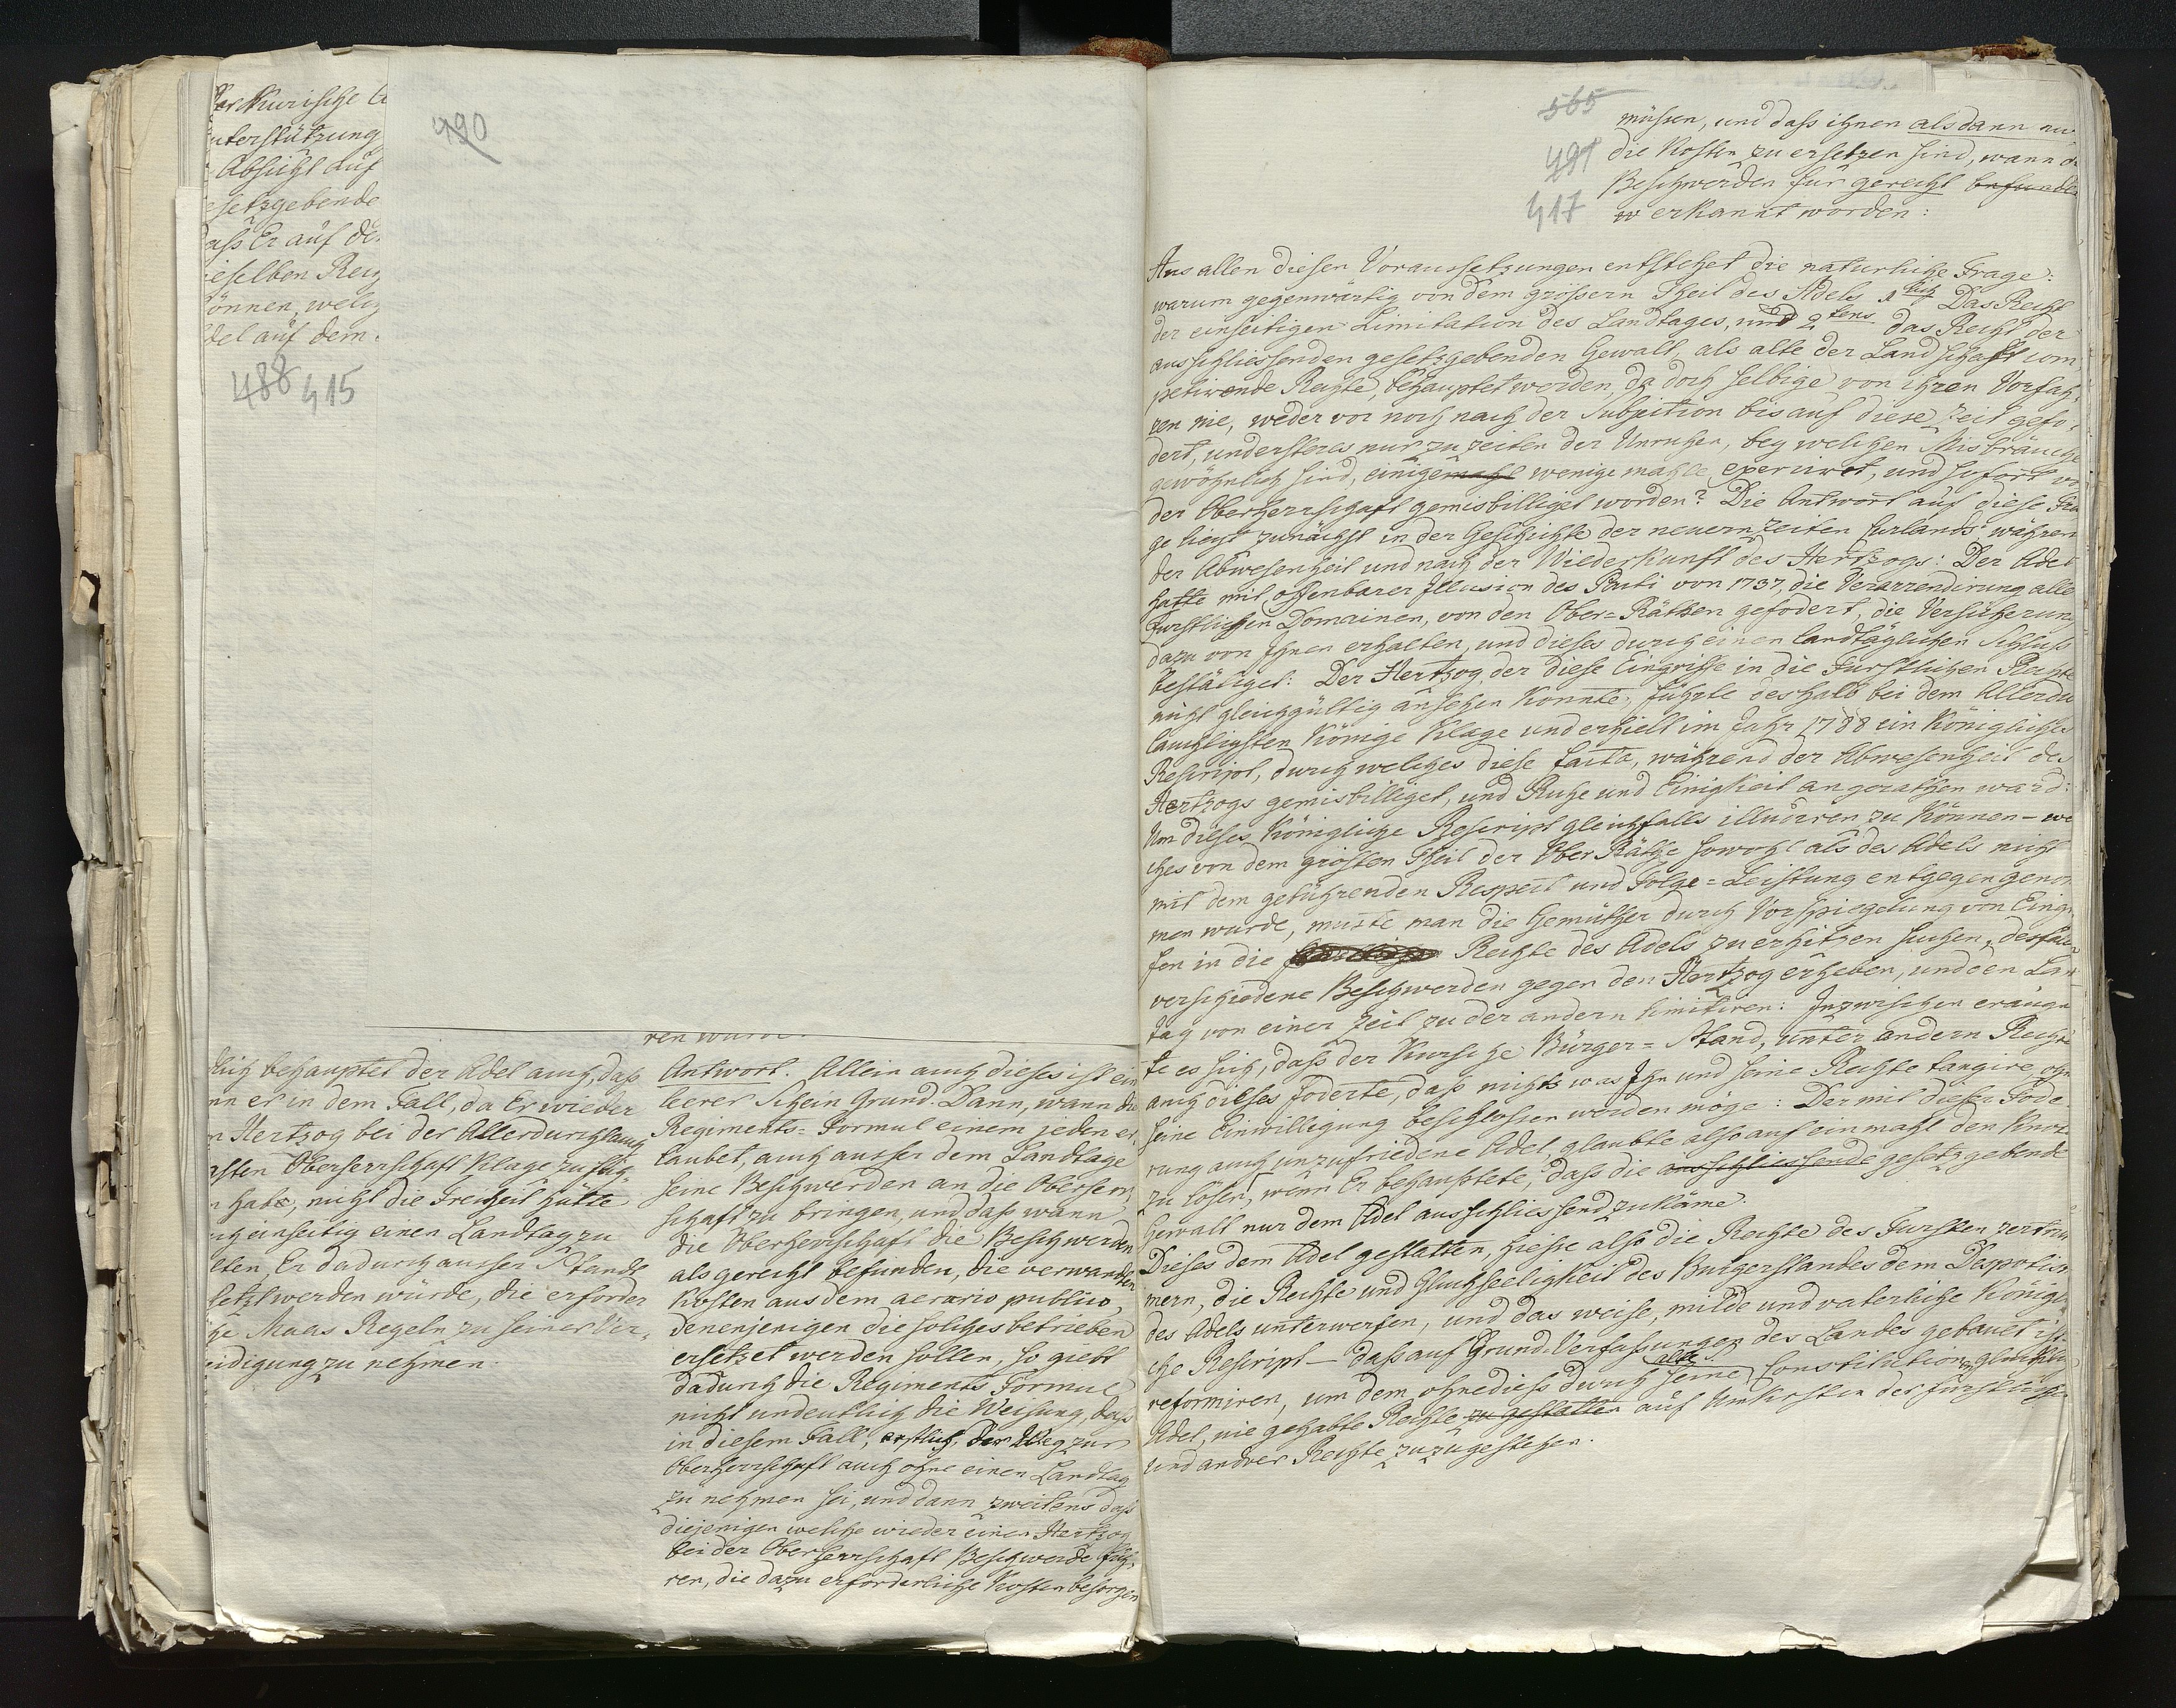 Der Kurische A
nterstützung
Absicht auf
esetzgebende
dass Er auf de
ieselben Rech
können, welch
del auf dem
488 415
490
ren würde.
dlich behauptet der Adel auch, dass
nn er in dem Fall, da Er wieder
n Hertzog bei der Allerdurchlauch
gsten Oberherrschaft Klage zu füh
n habe, nicht die Freiheit hätte
ch einseitig einen Landtag zu
lten, Er dadurch ausser Stande
setzt werden würde, die erforder
che Maas Regeln zu seiner Ver-
eidigung zu nehmen.
Antwort. Allein auch dieses ist ein
leerer Schein Grund. Dann, wann die
Regiments-Formul einem jeden er-
laubet, auch ausser dem Landtage
seine Beschwerden an die Oberherr-
schaft zu bringen, und dass wann
die Oberherrschaft die Beschwerden
als gerecht befunden, die verwandten
Kosten aus dem aerario publico,
denenjenigen die solches betrieben
ersetzet werden sollen, so giebt
dadurch die Regiments Formul
nicht undeutlich die Weisung, dass
in diesem Fall, erstlich, der Weg zur
Oberherrschaft auch ohne einen Landtag
zu nehmen sei, und dann zweitens dass
diejenigen welche wieder einen Hertzog
bei der Oberherrschaft Beschwerde füh-
ren, die dazu erforderliche Kosten besorgen
565
491
417
müssen, und dass ihnen alsdann nur
die Kosten zu ersetzen sind, wann die
Beschwerden für gerecht befunden
w erkannt worden:
Aus allen diesen Voraussetzungen entstehet die naturliche Frage:
warum gegenwärtig von dem grössern Theil des Adels 1 lich Das Recht
der einseitigen Limitation des Landtages, und 2 tens das Recht der
ausschliessenden gesetzgebenden Gewalt, als alte der Landschaft com-
petirende Rechte, behauptet werden, da doch selbige von ihren Vorfah-
ren nie, weder vor noch nach der Subjection bis auf diese Zeit gefo-
dert, und ersteres nur zu zeiten der Unruhen, bey welchen Misbräuche
gewöhnlich sind, einigemahl wenige mahle exerciret, und sofort vo
der Oberherrschaft gemisbilliget worden? Die Antwort auf diese Fra
ge liegt zunächst in der Geschichte der neuern Zeiten Curlands während
der Abwesenheit und nach der Wiederkunft des Hertzogs: Der Adel
hatte mit offenbarer Illusion des Pacti von 1737, die Verarrendirung alle
furstlichen Domainen, von den Ober-Räthen gefodert, die Versicherung
dazu von Ihnen erhalten, und dieses durch einen landtäglichen Schluss
bestätiget: Der Hertzog, der diese Eingriffe in die Fürstlichen Rechte
nicht gleichgültig ansehen konnte, führte deshalb bei dem Allerdu
lauchtigsten Könige Klage und erhielt im Jahr 1788 ein Königliches
Rescript, durch welches diese facta, während der Abwesenheit des
Hertzogs gemisbilliget, und Ruhe und Einigkeit angerathen ward:
Um dieses Königliche Rescript gleichfalls illudiren zu können - we
ches von dem grösten Theil der Ober Räthe sowohl als des Adels nicht
mit dem gebührenden Respect und Folge-Leistung entgegen genom
men wurde, muste man die Gemüther durch Vorspiegelung von Eingri
fen in die Rechte des Adels zu erhitzen suchen, desfals
verschiedene Beschwerden gegen den Hertzog erheben, und den Lan
tag von einer Zeit zu der andern limitiren: Inzwischen eräugn
te es sich, dass der Kursche Bürger-Stand, unter andern Rechte
auch dieses foderte, dass nichts was Ihn und seine Rechte tangire, ohn
seine Einwilligung beschlossen werden möge: Der mit dieser Fode
rung auch unzufriedene Adel, glaubte also auf einmahl den Knot
zu lösen, wenn Er behauptete, dass die ausschliessende gesetzgebende
Gewalt nur dem Adel ausschliessend zukäme.
Dieses dem Adel gestatten, hiesse also die Rechte des Fursten zertrüm
mern, die Rechte und Glückseeligkeit des Burgerstandes dem Despotism
des Adels unterwerfen, und das weise, milde und vaterliche Königli
che Rescript - dass auf Grund-Verfassungen des Landes gebauet ist -
reformiren, um dem ohnediess durch seine alte Constitutionen glückli
Adel, nie gehabte Rechte zu gestatten auf Unkosten der fürstliche
und andrer Rechte zuzugestehen.